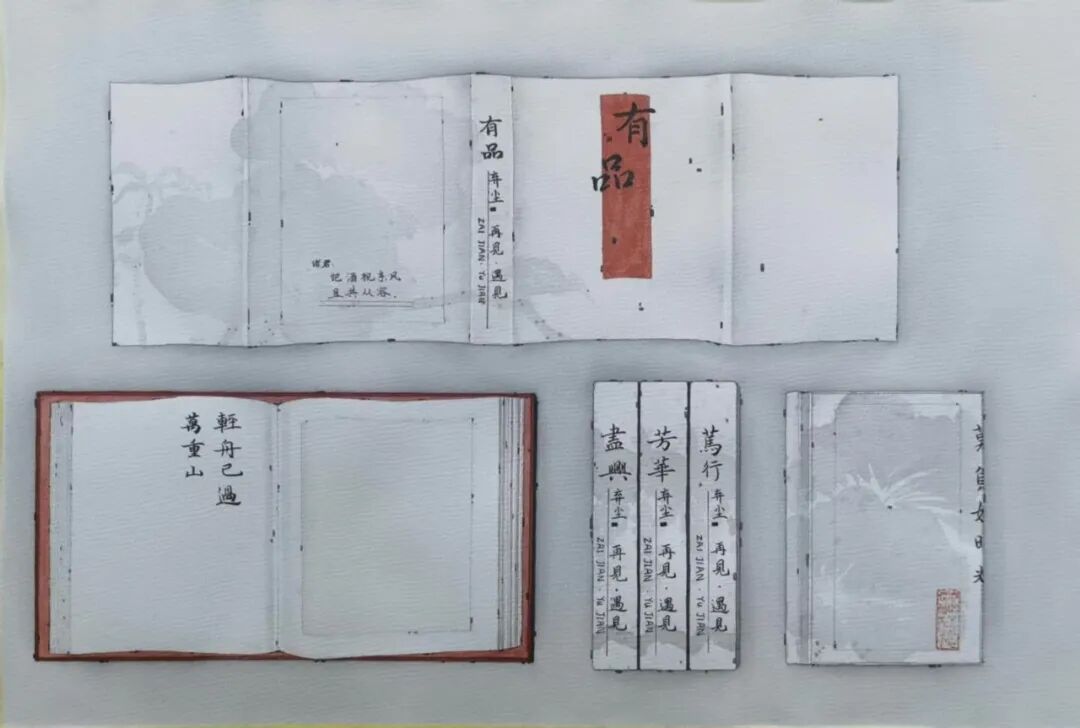 诸君,
把酒祝东风
且共从容.
有品 弃尘 再見·遇見
ZAI JIAN·Yu JIAN
有品
輕舟已過
萬重山
盡興 弃尘 再見·遇見
ZAI JIAN·Yu JIAN
芳華 弃尘 再見·遇見
ZAI JIAN·Yu JIAN
篤行 弃尘 再見·遇見
ZAI JIAN·Yu JIAN